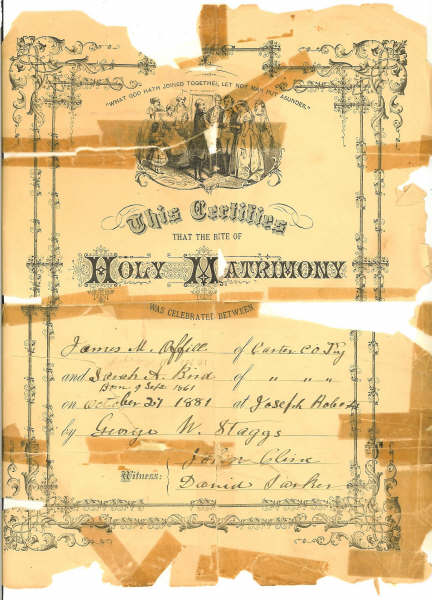 "WHAT GOD HATH JOINED TOGETHER, LET NOT MAN PUT ASUNDER."
This Certifies
THAT THE RITE OF
HOLY MATRIMONY
WAS CELEBRATED BETWEEN
James M. Offill of Carter CO Ky
and Sarah A. Bird of " " "
Born 9 Sept 1861
on October 27 1881 at Joseph
by George W. Staggs
Witness: John Cline
David Parker